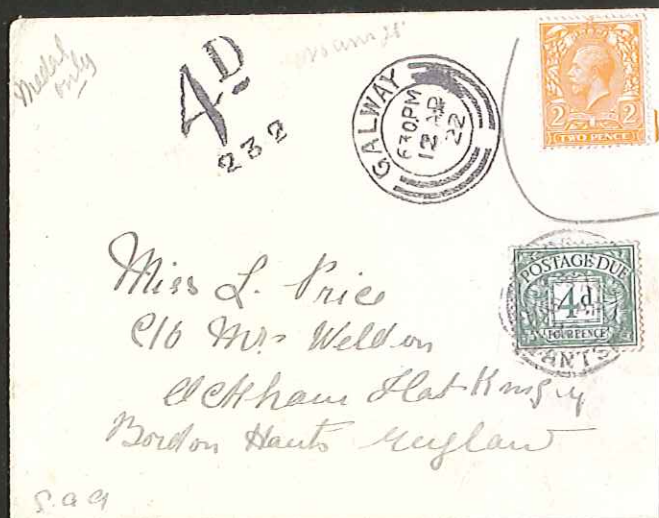 Medal
only
4D
232
GALWAY
630PM
12 AP
22
2 2
TWO PENCE
POSTAGE DUE
4d
FOURPENCE
HANTS
Miss L. Price
C/o Mrs Weldon
Bordon Hants England